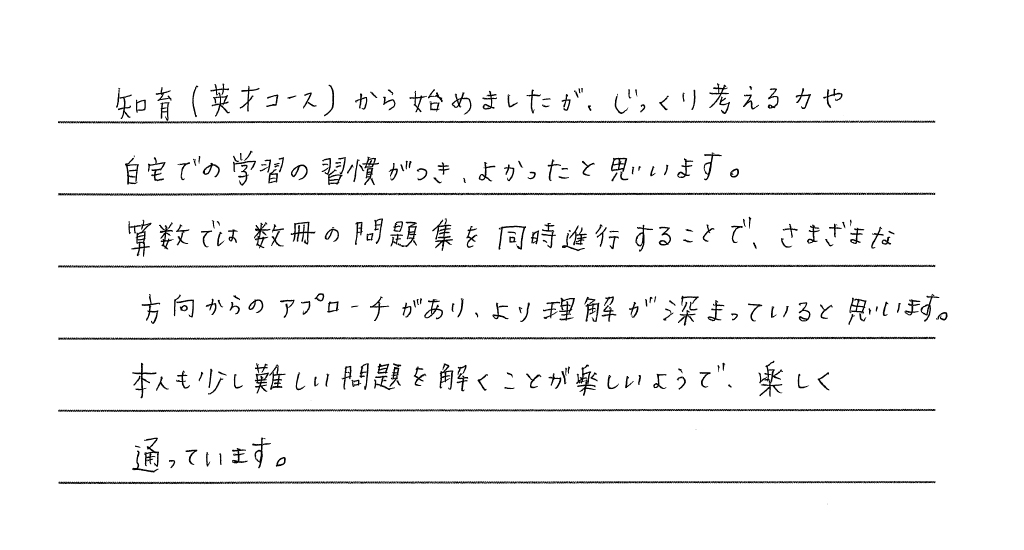 知育(英才コース)から始めましたが、じっくり考える力や
自宅での学習の習慣がつき、よかったと思います。
算数では数冊の問題集を同時進行することで、さまざまな
方向からのアプローチがあり、より理解が深まっていると思います。
本人も少し難しい問題を解くことが楽しいようで、楽しく
通っています。